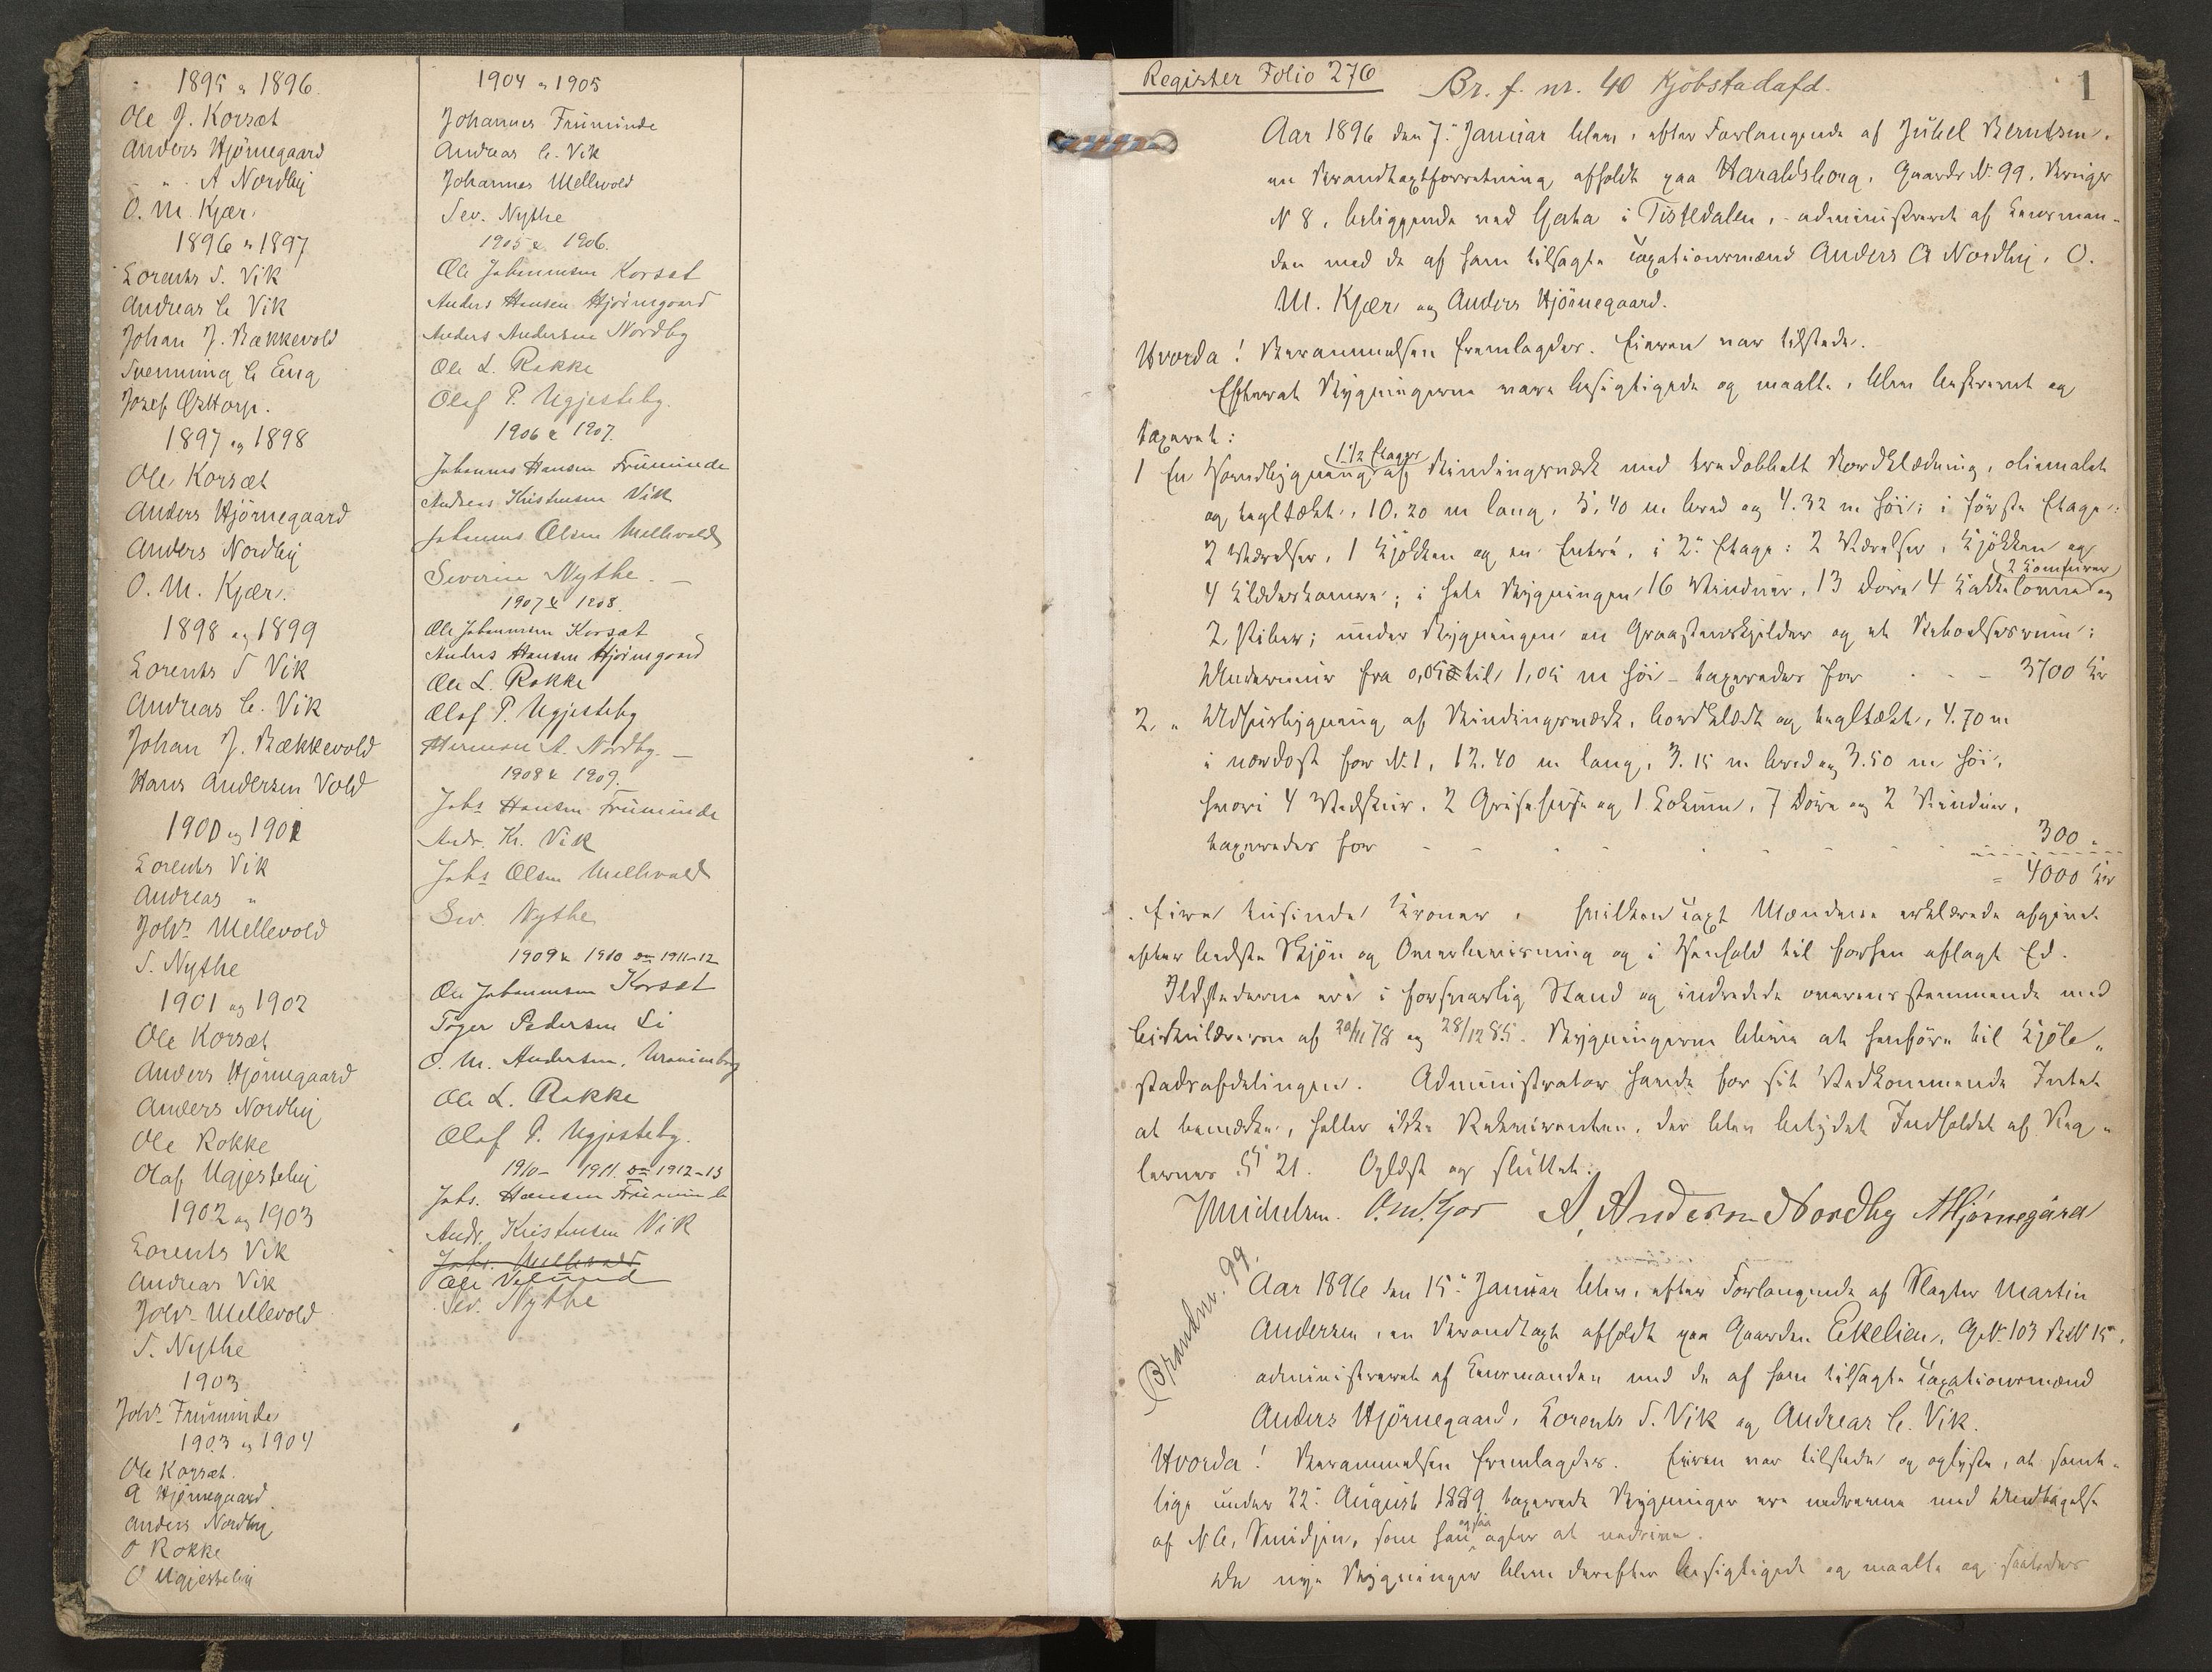 1895 " 1896.
Ole J. Korsæt
Anders Hjørnegaard
" A Nordby
O. M. Kjær.
1896 " 1897
Lorents S. Vik
Andreas C Vik
Johan J. Bækkevold
Svenning C Eng
Josef Østtorp.
1897 og 1898
Ole Korsæt
Anders Hjørnegaard
Anders Nordby
O. M. Kjær.
1898 og 1899
Lorents S Vik
Andreas C. Vik
Johan J. Bækkevold
Hans Andersen Vold
1900 og 1901
Lorents Vik
Andreas "
Johs Mellevold
S. Nythe
1901 og 1902
Ole Korsæt
Anders Hjørnegaard
Anders Nordby
Ole Rokke
Olaf Ugjesteby
1902 og 1903
Lorents Vik
Andreas Vik
Johs Mellevold
S. Nythe
1903
Johs Truminde
1903 og 1904
Ole Korsæt.
A Hjørnegaard
Anders Nordby
O Rokke
O Ugjesteby
1904 " 1905
Johannes Truminde
Andreas C. Vik
Johannes Mellevold
Sev. Nythe
1905 & 1906.
Ole Johannesen Korsæt
Anders Hansen Hjørnegaard
Anders Andersen Nordby
Ole L. Rokke
Olaf P. Ugjesteby.
1906 & 1907.
Johannes Hansen Truminde
Andreas Kristensen Vik
Johannes Olsen Mellevold
Severin Nythe. —
1907 & 1908.
Ole Johannesen Korsæt
Anders Hansen Hjørnegaard
Ole L. Rokke
Olaf P. Ugjesteby
Herman A. Nordby. —
1908 & 1909.
Johs Hansen Truminde
Andr. Kr. Vik
Johs Olsen Mellevold
Sev. Nythe
1909 & 1910 og 1911-12
Ole Johannesen Korsæt
Tøger Pedersen Li
O. M. Andersen,
Ole L. Rokke
Olaf P. Ugjesteby.
1910 - 1911. og 1912-13
Johs. Hansen Truminde
Andr. Kristensen Vik
Johs. Mellevold
Ole
Sev. Nythe
Register Folio 276
Br. f. nr. 40 Kjøbstadafd.
1
Aar 1896 den 7. Januar blev, efter Forlangende af Juhel Berntsen,
en Brandtaxtforretning afholdt paa Haraldsborg, Gaards N. 99, Brugs
N 8, beliggende ved Gata i Tistedalen, - administreret af Lensman-
den med de af ham tilsagte Taxationsmænd Anders A Nordby, O.
M. Kjær og Anders Hjørnegaard.
Hvorda! Berammelsen fremlagdes. Eieren var tilstede.
Efterat Bygningerne vare besigtigede og maalte, blev beskrevet og
taxeret:
1 En Vaandbygning 1 1/2 Etages af Bindingsværk med udvendig Bordklædning, oliemalet
og tagltækt, 10.20 m lang, 5.40 m bred og 4.32 m høi; i første Etage:
2 Værelser, 1 Kjøkken og en Entre, i 2. Etage: 2 Værelser, Kjøkken og
4 Klædeskamre; i hele Bygningen 16 Vinduer, 13 Døre 4 Kakkelovne 2 Komfurer og
2 Piber; under Bygningen en Graastenskjelder og et Beboelsesrum;
Undermur fra 0,05 til 1,05 m høi - taxeredes for - - - 3700 Kr
2. " Udhusbygning af Bindingsværk, bordklædt og tagltækt, 4.70 m
i nordost for N. 1, 12.40 m lang, 3.15 m bred og 3.50 m høi,
hvori 4 Vedskur, 2 Grisehuse og 1 Lokum, 7 Døre og 2 Vinduer,
taxeredes for - - - 300 "
= 4000 Kr
. Fire tusinde Kroner, hvilken Taxt Mændene erklærede afgivet
efter bedste Skjøn og Overbevisning og i Henhold til forhen aflagt Ed.
Ildstederne ere i forsvarlig Stand og indredede overensstemmende med
Cirkulærerne af 20/11 78 og 28/12 85. Bygningerne bliver at henføre til Kjøb-
stadsafdelingen. Administrator havde for sit Vedkommende Intet
at bemærke, heller ikke Rekvirenten, der blev betydet Indholdet af Reg-
lernes § 21. Oplæst og sluttet.
O. M. Kjær A. Anderson Nordby AHjørnegård
Brandnr. 99.
Aar 1896 den 15. Januar blev, efter Forlangende af Slagter Martin
Andersen, en Brandtaxt afholdt paa Gaarden Ekelien, G. N. 103 B. N 15,
administreret af Lensmanden med de af ham tilsagte Taxationsmænd
Anders Hjørnegaard, Lorents S. Vik og Andreas C. Vik.
Hvorda! Berammelsen fremlagdes. Eieren var tilstede og oplyste, at samt-
lige under 22. August 1889 taxerede Bygninger ere nedrevne med Undtagelse
af N 6, Smidjen, som han ogsaa agter at nedrive.
De nye Bygninger blev derefter besigtigede og maalte og saaledes